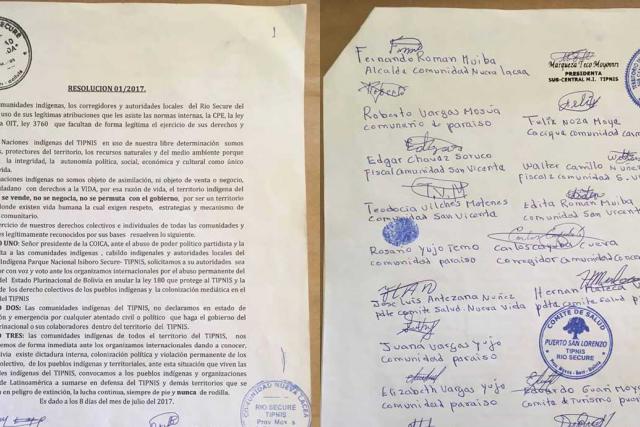 1
SECURE
10
RESOLUCION 01/2017.
omunidades indígenas, los corregidores y autoridades locales del Rio Secure del
uso de sus legítimas atribuciones que les asiste las normas internas, la CPE, la ley
la OIT, ley 3760 que facultan de forma legítima el ejercicio de sus derechos y
Naciones indígenas del TIPNIS en uso de nuestra libre determinación somos
s, protectores del territorio, los recursos naturales y del medio ambiente porque
la integridad, la autonomía política, social, económica y cultural como único
vida.
naciones indígenas no somos objeto de asimilación, ni objeto de venta o negocio,
udadano con derechos a la VIDA, por esa razón de vida, el territorio indígena del
se vende, no se negocia, no se permuta con el gobierno, por ser un territorio
donde existen vida humana la cual exigen respeto, estrategias y mecanismo de
comunitario.
ercicio de nuestros derechos colectivos e individuales de todas las comunidades y
es legítimamente reconocidos por sus bases resuelven lo siguiente.
O UNO: Señor presidente de la COICA, ante el abuso de poder político partidista y la
lta a las comunidades indígenas , cabildo indígenales y autoridades locales del
Indígena Parque Nacional Isiboro Secure- TIPNIS, solicitamos a su autoridades sea
por con voz y voto ante los organismos internacionales por el abuso permanente del
del Estado Plurinacional de Bolivia en anular la ley 180 que protege al TIPNIS y la
de los derecho colectivos de los pueblos indígenas y la colonización mediática en el
el TIPNIS
O DOS: Las comunidades indígenas del TIPNIS, no declaramos en estado de
ón y emergencia por cualquier atentado civil o político que haga el gobierno del
rinacional o sus colaboradores dentro del territorio del TIPNIS.
O TRES: las comunidades indígenas de todos el territorio del TIPNIS, nos
emos de forma inmediata ante los organismos internacionales dando a conocer,
livia existe dictadura interna, colonización política y violación permanente de los
colectivo, de los pueblos indígenas y territoriales, ante esta situación que viven las
des indígenas del TIPNIS, convocamos a los pueblos indígenas y organizaciones
s de Latinoamérica a sumarse en defensa del TIPNIS y demás territorios que se
n en peligro de extinción, la lucha continua, siempre de pie y nunca de rodilla.
Es dado a los 8 días del mes de julio del 2017.
COMUNIDAD NUEVA LACEA
RIO SECURE
TIPNIS
Fernando Roman Muiba
Alcalde comunidad Nueva Lacea
Marqueza Teco Moyoviri
PRESIDENTA
SUB-CENTRAL M.I. TIPNIS
Roberto
Roberto Vargas Mosua
comunario de paraiso
Felix Noza Moye
Cacique comunidad
Edgar Chavez Soruco
fiscal comunidad San Vicenta
Walter Camillo Nuñez
fiscal comunidad S.
Teodocia Vilches Molenes
comunidad San Vicenta
Edita Roman Muiba
comunidad San
Rosano Yujo Temo
comunidad paraiso
Carlos cayuba Cueva
Corregidor comunidad
Jose Luis Antezana Nuñez
pdte comite Salud. Nueva Vida
Hernan
pdte comite Salud
COMITE DE SALUD
PUERTO SAN LORENZO
TIPNIS
RIO SECURE
Juana Vargas Yujo
Comunidad paraiso
Elizabeth Vargas Yujo
comunidad paraiso
Eduardo Guari Moye
Comite de Turismo